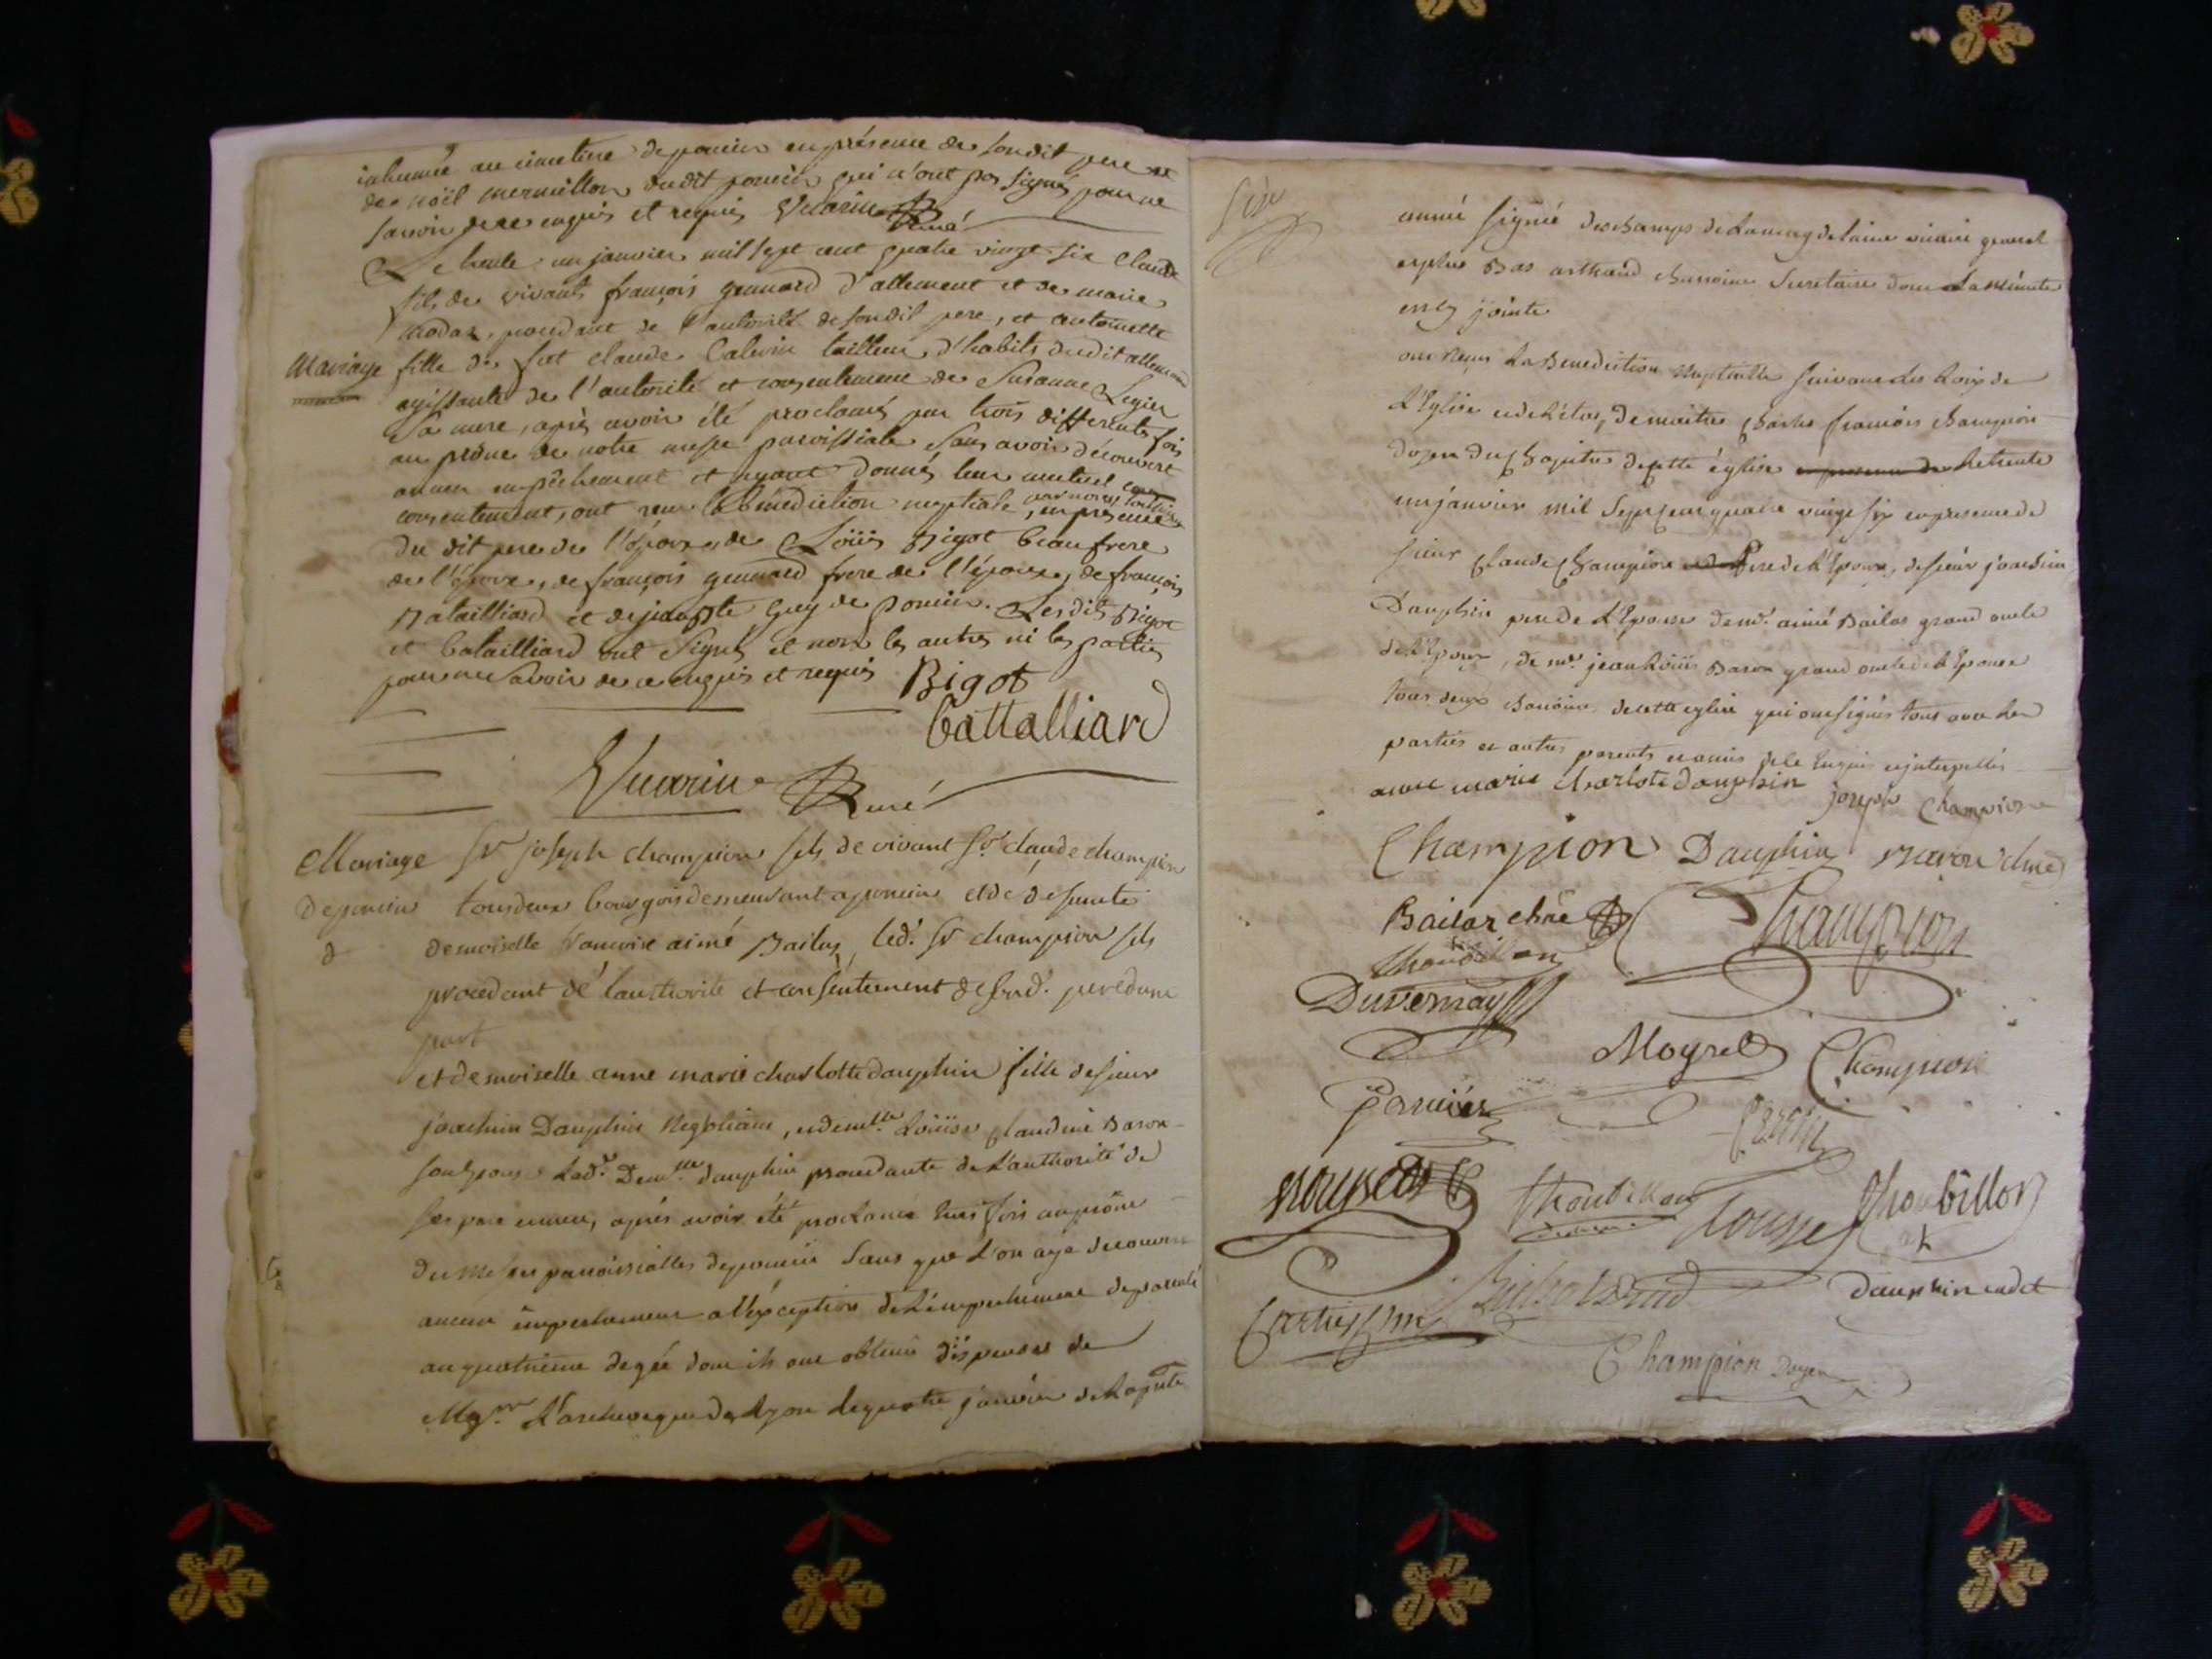 inhumée au cimetiere de poncin en présence de son dit pere et
de noël mermillon dudit poncin qui n'ont pas signés pour ne
savoir de ce enquis et requis Vuarin Curé
Le trente un janvier mil sept cent quatre vingt six Claude
fils de vivants françois gennard d'allement et de marie
rodar, procedant de l'autorité de son dit pere, et antoinette
Mariage fille de fut claude Calerin tailleur d'habits dudit allement
agissante de l'autorité et consentement de Susanne Legier
Sa mere, après avoir été proclamés par trois differentes fois
au prône de notre messe paroissiale Sans avoir découvert
aucun empêchement et ayant donnés leur mutuel
consentement, ont reçu la bénédiction nuptiale par nous soussigné, en présence
du dit pere de l'époux, de Loüis Bigot beaufrere
de l'époux, de françois gennard frere de l'époux, de françois
Batailliard et de jean Bte Guy de Poncin. Lesdits Bigot
et batailliard ont signés et non les autres ni les parties
pour ne savoir de ce enquis et requis Bigot
battalliard
Vuarin Curé
Mariage Sr joseph champion fils de vivant Sr claude champion
De poncin tous deux bourgois demeurant a poncin et de défunte
demoiselle françoise aimé Bailas, led. Sr champion fils
procedant de l'authorité et consentement de sond. pere dune
part
et demoiselle anne marie charlotte dauphin fille de sieur
joachim Dauphin Negotiant, et demlle Loüise Claudine Baron
son Epouse Lad. Demlle dauphin procedante de L'authorité de
ses pere et mere, après avoir été proclamés trois fois au prône
des Messes paroissialles de poncin Sans que L'on aye decouvert
aucun empechement a l'exception de L'empechement de parenté
au quatrieme degré dont ils ont obtenu dispenses de
Mgr. L'archeveque de Lyon le quatre janvier de La pnte
année signée deschamps de La magdelaine vicaire general
et plus Bas arthaud chanoine Secretaire dont La minute
est cy jointe
ont reçus La Benediction Nuptialle suivant Les Loix de
L'Eglise et de L'état, de maitre Charles françois Champion
doyen du Chapitre de cette église Le trente
un janvier mil Sept Cent quatre vingt six en presence de
sieur Claude Champion Pere de L'Epoux, de sieur joachim
Dauphin pere de L'Epouse de mr. aimé Bailas grand oncle
de L'Epoux, de mr. jean Loüis Baron grand oncle de L'Epouse
tous deux chanoine de cette eglise qui ont signés tous avec Les
parties et autres parents et amis de ce Enquis et interpellés
anne marie charlote dauphin joseph Champion
Champion Dauphin Baron chne
Bailas chne Champion
Thoubillon
Duvernay
Moyret Champion
Perrier
Thoubillon Cousse Thoubillon
dauphin cadet
Champion Doyen